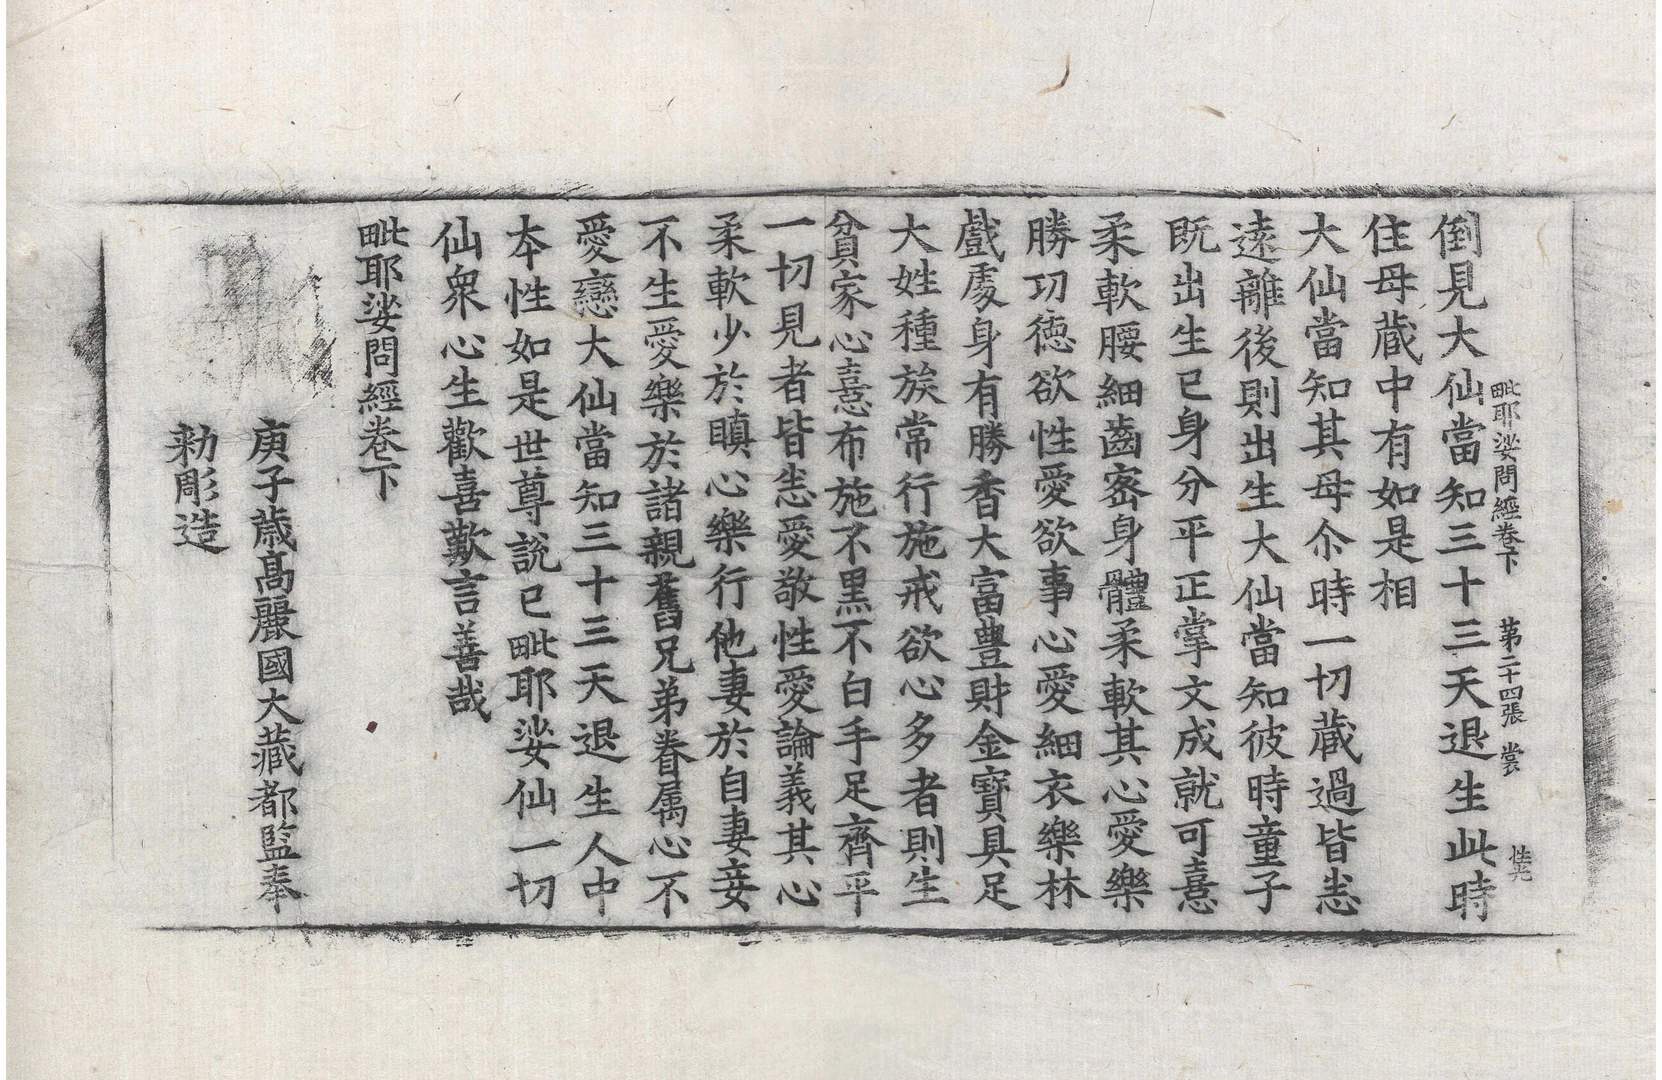 毗耶娑問經卷下 第二十四張 裳
倒見大仙當知三十三天退生此時
住母藏中有如是相
大仙當知其母尒時一切藏過皆悉
遠離後則出生大仙當知彼時童子
既出生已身分平正掌文成就可憙
柔軟腰細齒密身體柔軟其心愛樂
勝功德欲性愛欲事心愛細衣樂林
戲處身有勝香大富豊財金寶具足
大姓種族常行施戒欲心多者則生
貧家心憙布施不黒不白手足齊平
一切見者皆悉愛敬性愛論義其心
柔軟少於瞋心樂行他妻於自妻妾
不生愛樂於諸親舊兄弟眷属心不
愛戀大仙當知三十三天退生人中
夲性如是世尊說已毗耶娑仙一切
仙衆心生歡喜歎言善哉
毗耶娑問經卷下
庚子歲髙麗國大藏都監奉
勑彫造